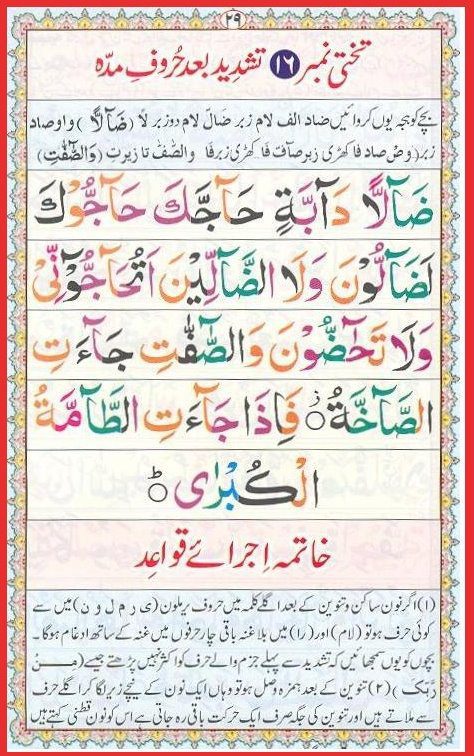 ۲۹
تختی نمبر ۱۶ تشدید بعد حُروفِ مدّہ
بچے کو ہجہ یوں کروائیں ضاد الف لام زبر ضَالَ لام دو زبر لًا (ضَآلًّا) واو صاد
زبر (وَصْ صاد فا کھڑی زبر صآفّ فا کھڑی زبر فا وَالصّٰٓفّٰ تا زیر تِ (وَالصّٰٓفّٰتِ)
ضَآلًّا دَآبَّةٍ حَآجَّكَ حَآجُّوْكَ
لَضَآلُّوْنَ وَلَا الضَّآلِّيْنَ اَتُحَآجُّوْٓنِّيْ
وَلَا تَحٰٓضُّوْنَ وَالصّٰٓفّٰتِ جَآءَتِ
الصَّآخَّةُ۝ فَاِذَا جَآءَتِ الطَّآمَّةُ
الْكُبْرٰى۝
خاتمہ اِجرائے قواعِد
(۱) اگر نون ساکن و تنوین کے بعد اگلے کلمہ میں حروف یرملون (ی ر م ل و ن) میں سے
کوئی حرف ہو تو (لام) اور (را) میں بلا غنہ باقی چار حرفوں میں غنہ کے ساتھ ادغام ہوگا۔
بچوں کو یوں سمجھائیں کہ تشدید سے پہلے جزم والے حرف کو اکثر نہیں پڑھتے جیسے (مِنْ
رَّبِّكَ) (۲) تنوین کے بعد ہمزہ وصل ہو تو وہاں ایک نون کے نیچے زیر لگا کر اگلے حرف
سے ملاتے ہیں اور تنوین کی جگہ صرف ایک حرکت باقی رہ جاتی ہے اس کو نون قطنی کہتے ہیں